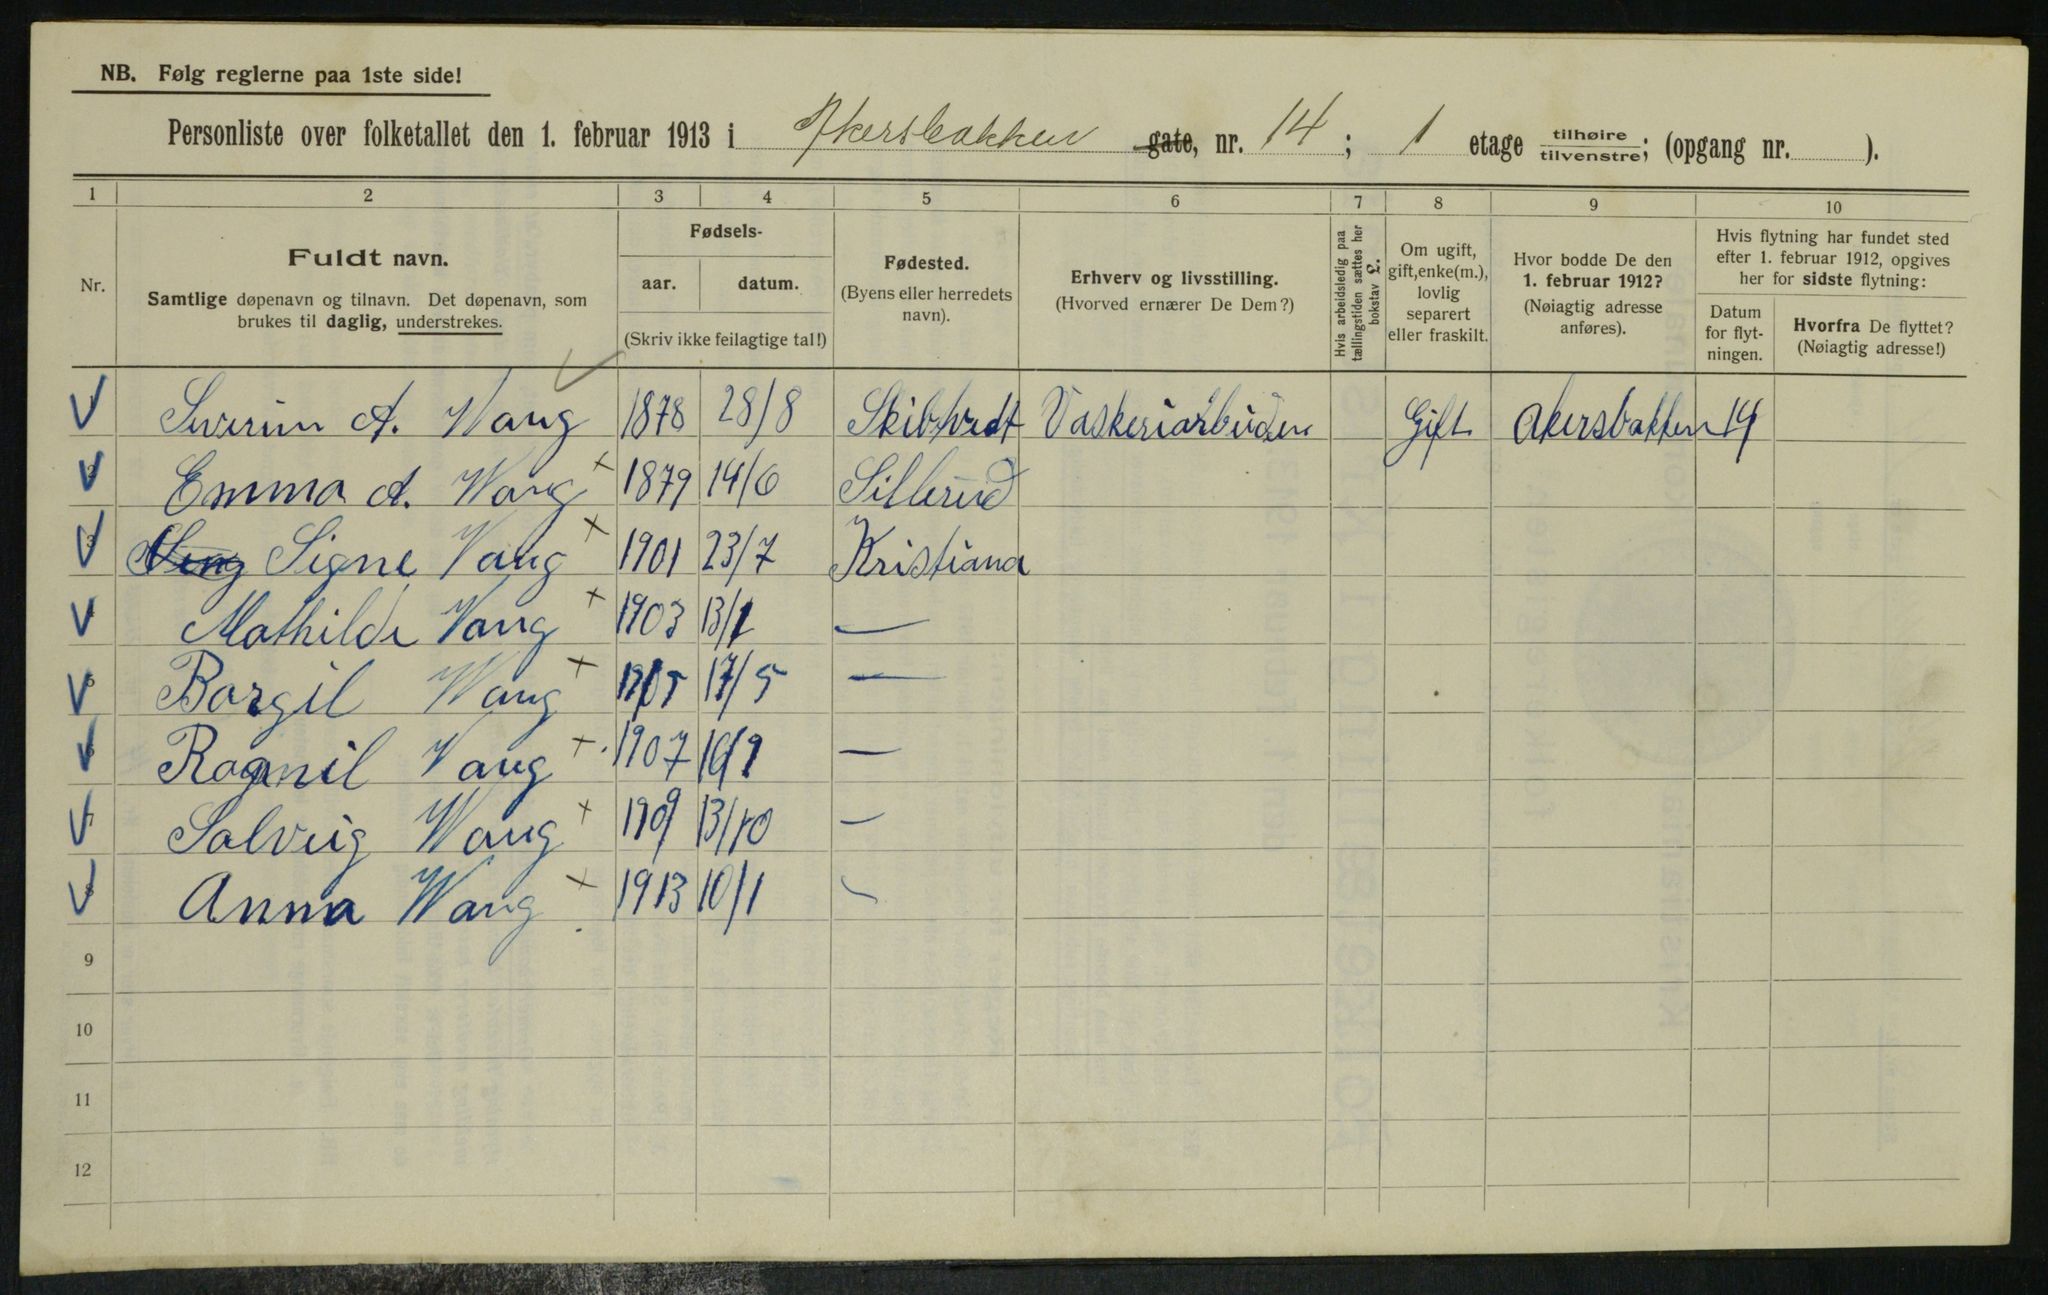 NB. Følg reglerne paa 1ste side!
Personliste over folketallet den 1. februar 1913 i Akersbakken gate, nr. 14; 1 etage tilhøire tilvenstre; (opgang nr. ).
1 2 3 4 5 6 7 8 9 10
Nr.
Fuldt navn.
Samtlige døpenavn og tilnavn. Det døpenavn, som
brukes til daglig, understrekes.
Fødsels-
aar. datum.
(Skriv ikke feilagtige tal!)
Fødested.
(Byens eller herredets
navn).
Erhverv og livsstilling.
(Hvorved ernærer De Dem?)
Hvis arbeidsledig paa
tællingstiden sættes her
bokstav L.
Om ugift,
gift, enke(m.),
lovlig
separert
eller fraskilt.
Hvor bodde De den
1. februar 1912?
(Nøiagtig adresse
anføres).
Hvis flytning har fundet sted
efter 1. februar 1912, opgives
her for sidste flytning:
Datum
for flyt-
ningen.
Hvorfra De flyttet?
(Nøiagtig adresse!)
1 Severin A. Wang 1878 28/8 Gift Akersbakken 14
2 Emma A. Wang 1879 14/6 Sillerud
3 Signe Vang 1901 23/7 Kristiana
4 Mathilde Vang 1903 13/1 —
5 Borgil Wang 1905 17/5 —
6 Ragnil Vang 1907 —
7 Solveig Wang 1909 13/10 —
8 Anna Wang 1913 10/1 —
9
10
11
12